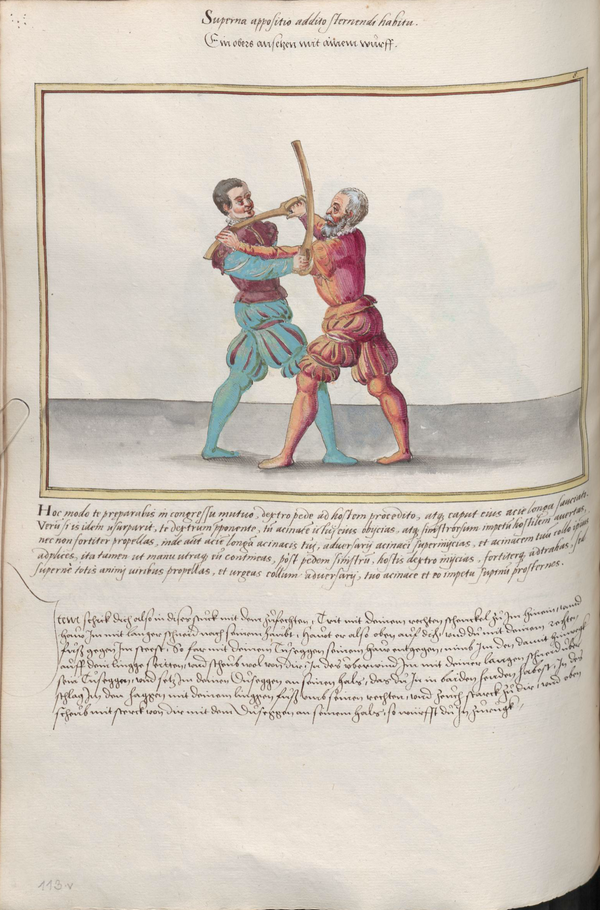 Superna appositio addito sternende habitu.
Ein obers ansetzen mit ainem wurff.
Hoc modo te preparabis in congressu mutuo, dextro pede ad hostem procedito, atq₃ caput eius acie longa sauciato.
Verū si is idem usurparit, te dextrum ponente, tū acinacē istuc eius obycias, atq₃ sinistrorsum impetū hostilem auertas,
nec non fortiter propellas, inde autē acie longa acinacis tui, aduersarij acinaci superinijcias, et acinacem tuū collo ipsius
adplices, ita tamen ut manu utraq₃ eū contineas, pōst pedem sinistrū, hostis dextro inijcias, fortiterq₃ adtrahas, sed
supernè totis animj uiribus propellas, et urgeas collum aduersarij, tuo acinace et eo impetu supinū prosternes.
Item schick dich also in diser stuck mit dem zufechten, Trit mit deinem rechten schenckel zu Im hinein, und
haw Im mit langer schneid nach seinem haubt, Hawt er also oben auf dich und du mit deinem rechten
fuoß gegen Im steest, So far mit deinem Tuseggen seinem haw entgegen, nimb Im den damit hinwegk
auff dein lingge seitten, und scheub wol von dir, In des uberwind Im mit deiner langen schneid über
sein Tuseggen, und setz Im deinen Duseggen an seinen hals, das du In in baiden henden habest, In des
schlag In den haggen mit deinem linggen fuoß umb seinen rechten, und zeuch starck zu dir, und oben
scheub mit sterck von dir mit dem Duseggen an seinem hals, so würffst du In zuruck
113 v